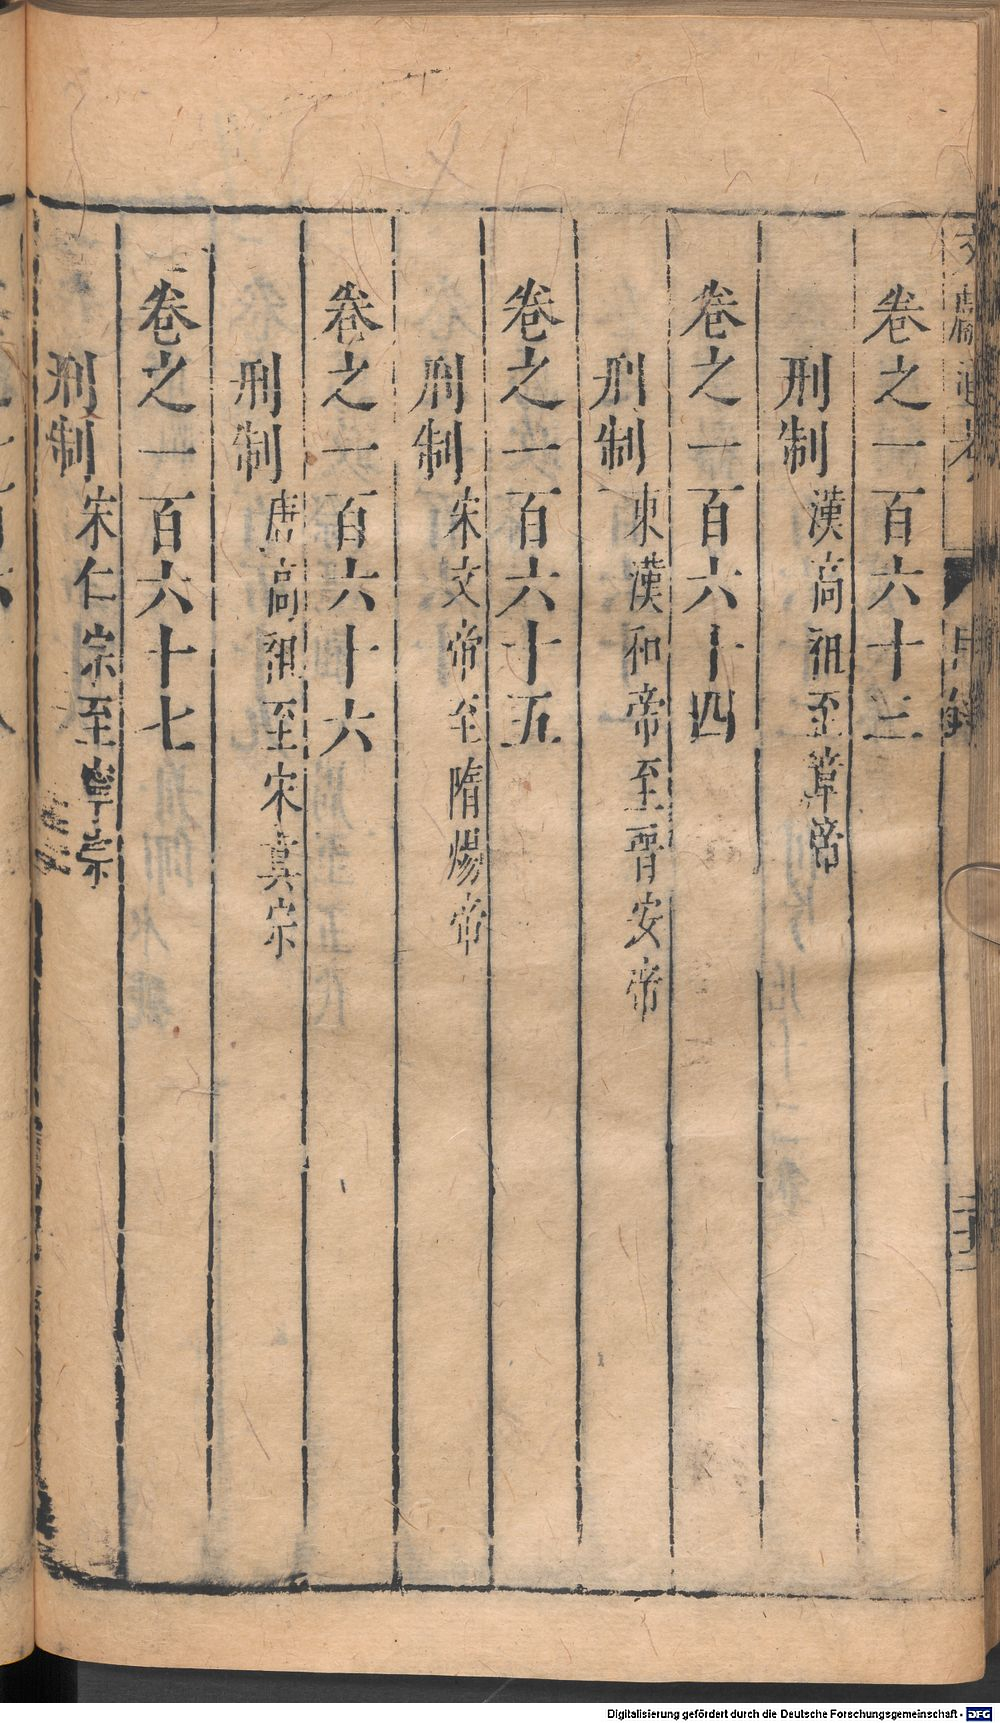 文獻通考 目錄
卷之一百六十三
刑制 漢高祖至章帝
卷之一百六十四
刑制 東漢和帝至晋安帝
卷之一百六十五
刑制 宋文帝至隋煬帝
卷之一百六十六
刑制 唐高祖至宋真宗
卷之一百六十七
刑制 宋仁宗至寧宗
Digitalisierung gefördert durch die Deutsche Forschungsgemeinschaft - DFG